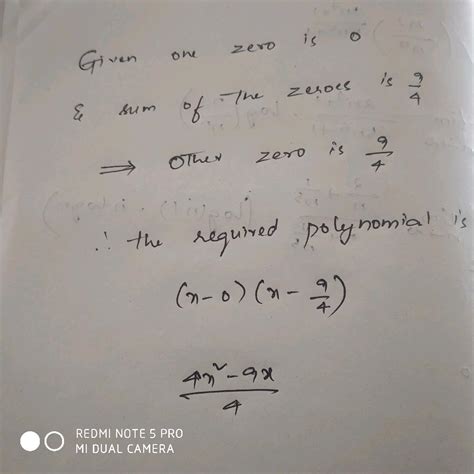 Given one zero is 0
& sum of the zeroes is 9/4
⇒ Other zero is 9/4
∴ the required polynomial is
(x-0)(x-9/4)
4x²-9x
4
REDMI NOTE 5 PRO
MI DUAL CAMERA